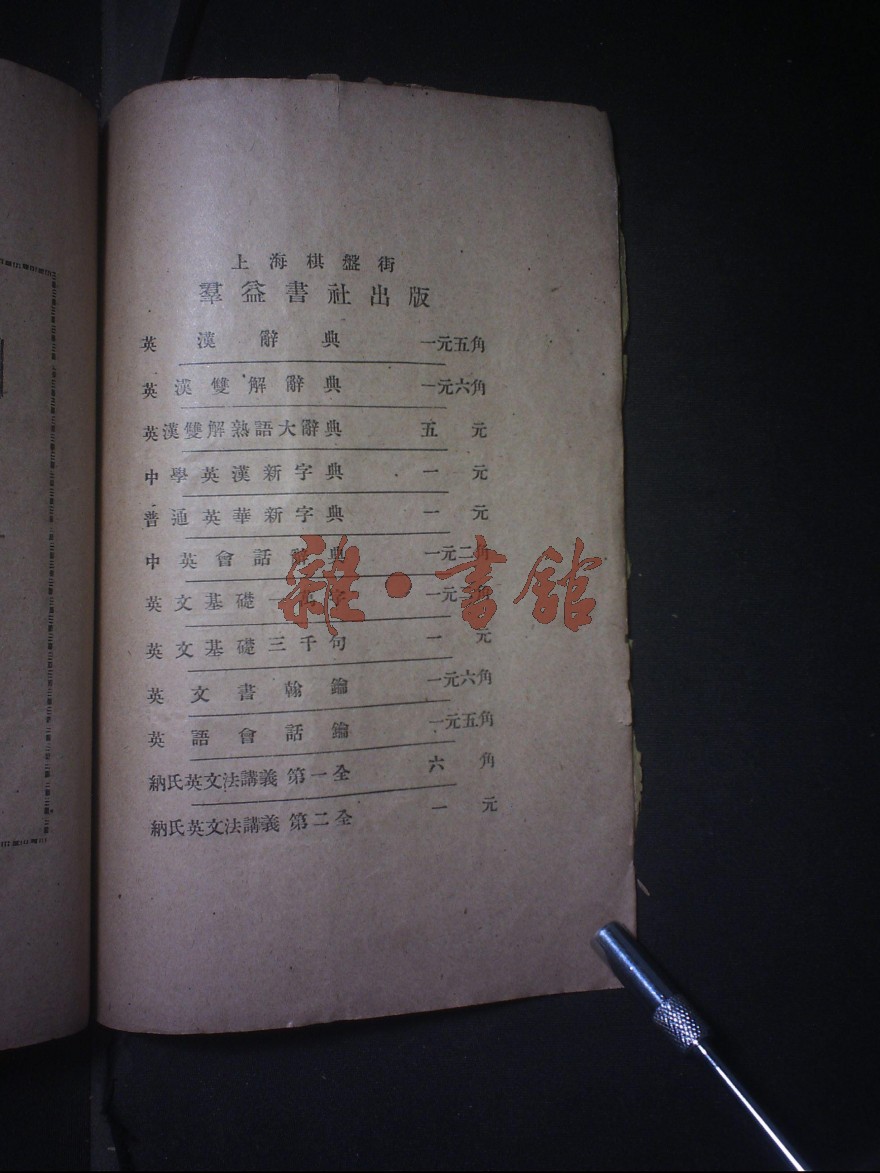 上海棋盤街
羣益書社出版
英漢辭典 一元五角
英漢雙解辭典 一元六角
英漢雙解熟語大辭典 五元
中學英漢新字典 一元
普通英華新字典 一元
中英會話辭典 一元二角
英文基礎一 字 一元 角
英文基礎三千句 一元
英文書翰鑰 一元六角
英語會話鑰 一元五角
納氏英文法講義 第一全 六角
納氏英文法講義 第二全 一元
雜·書館